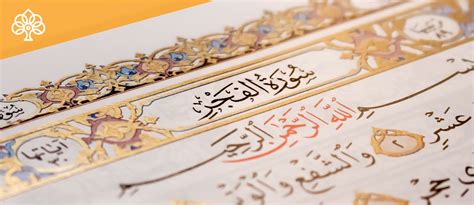 سُورَةُ الفَجْرِ
آياتها
اللَّهِ الرَّحْمَٰنِ الرَّحِيمِ
عَشْرٍ ٢ وَالشَّفْعِ وَالْوَ